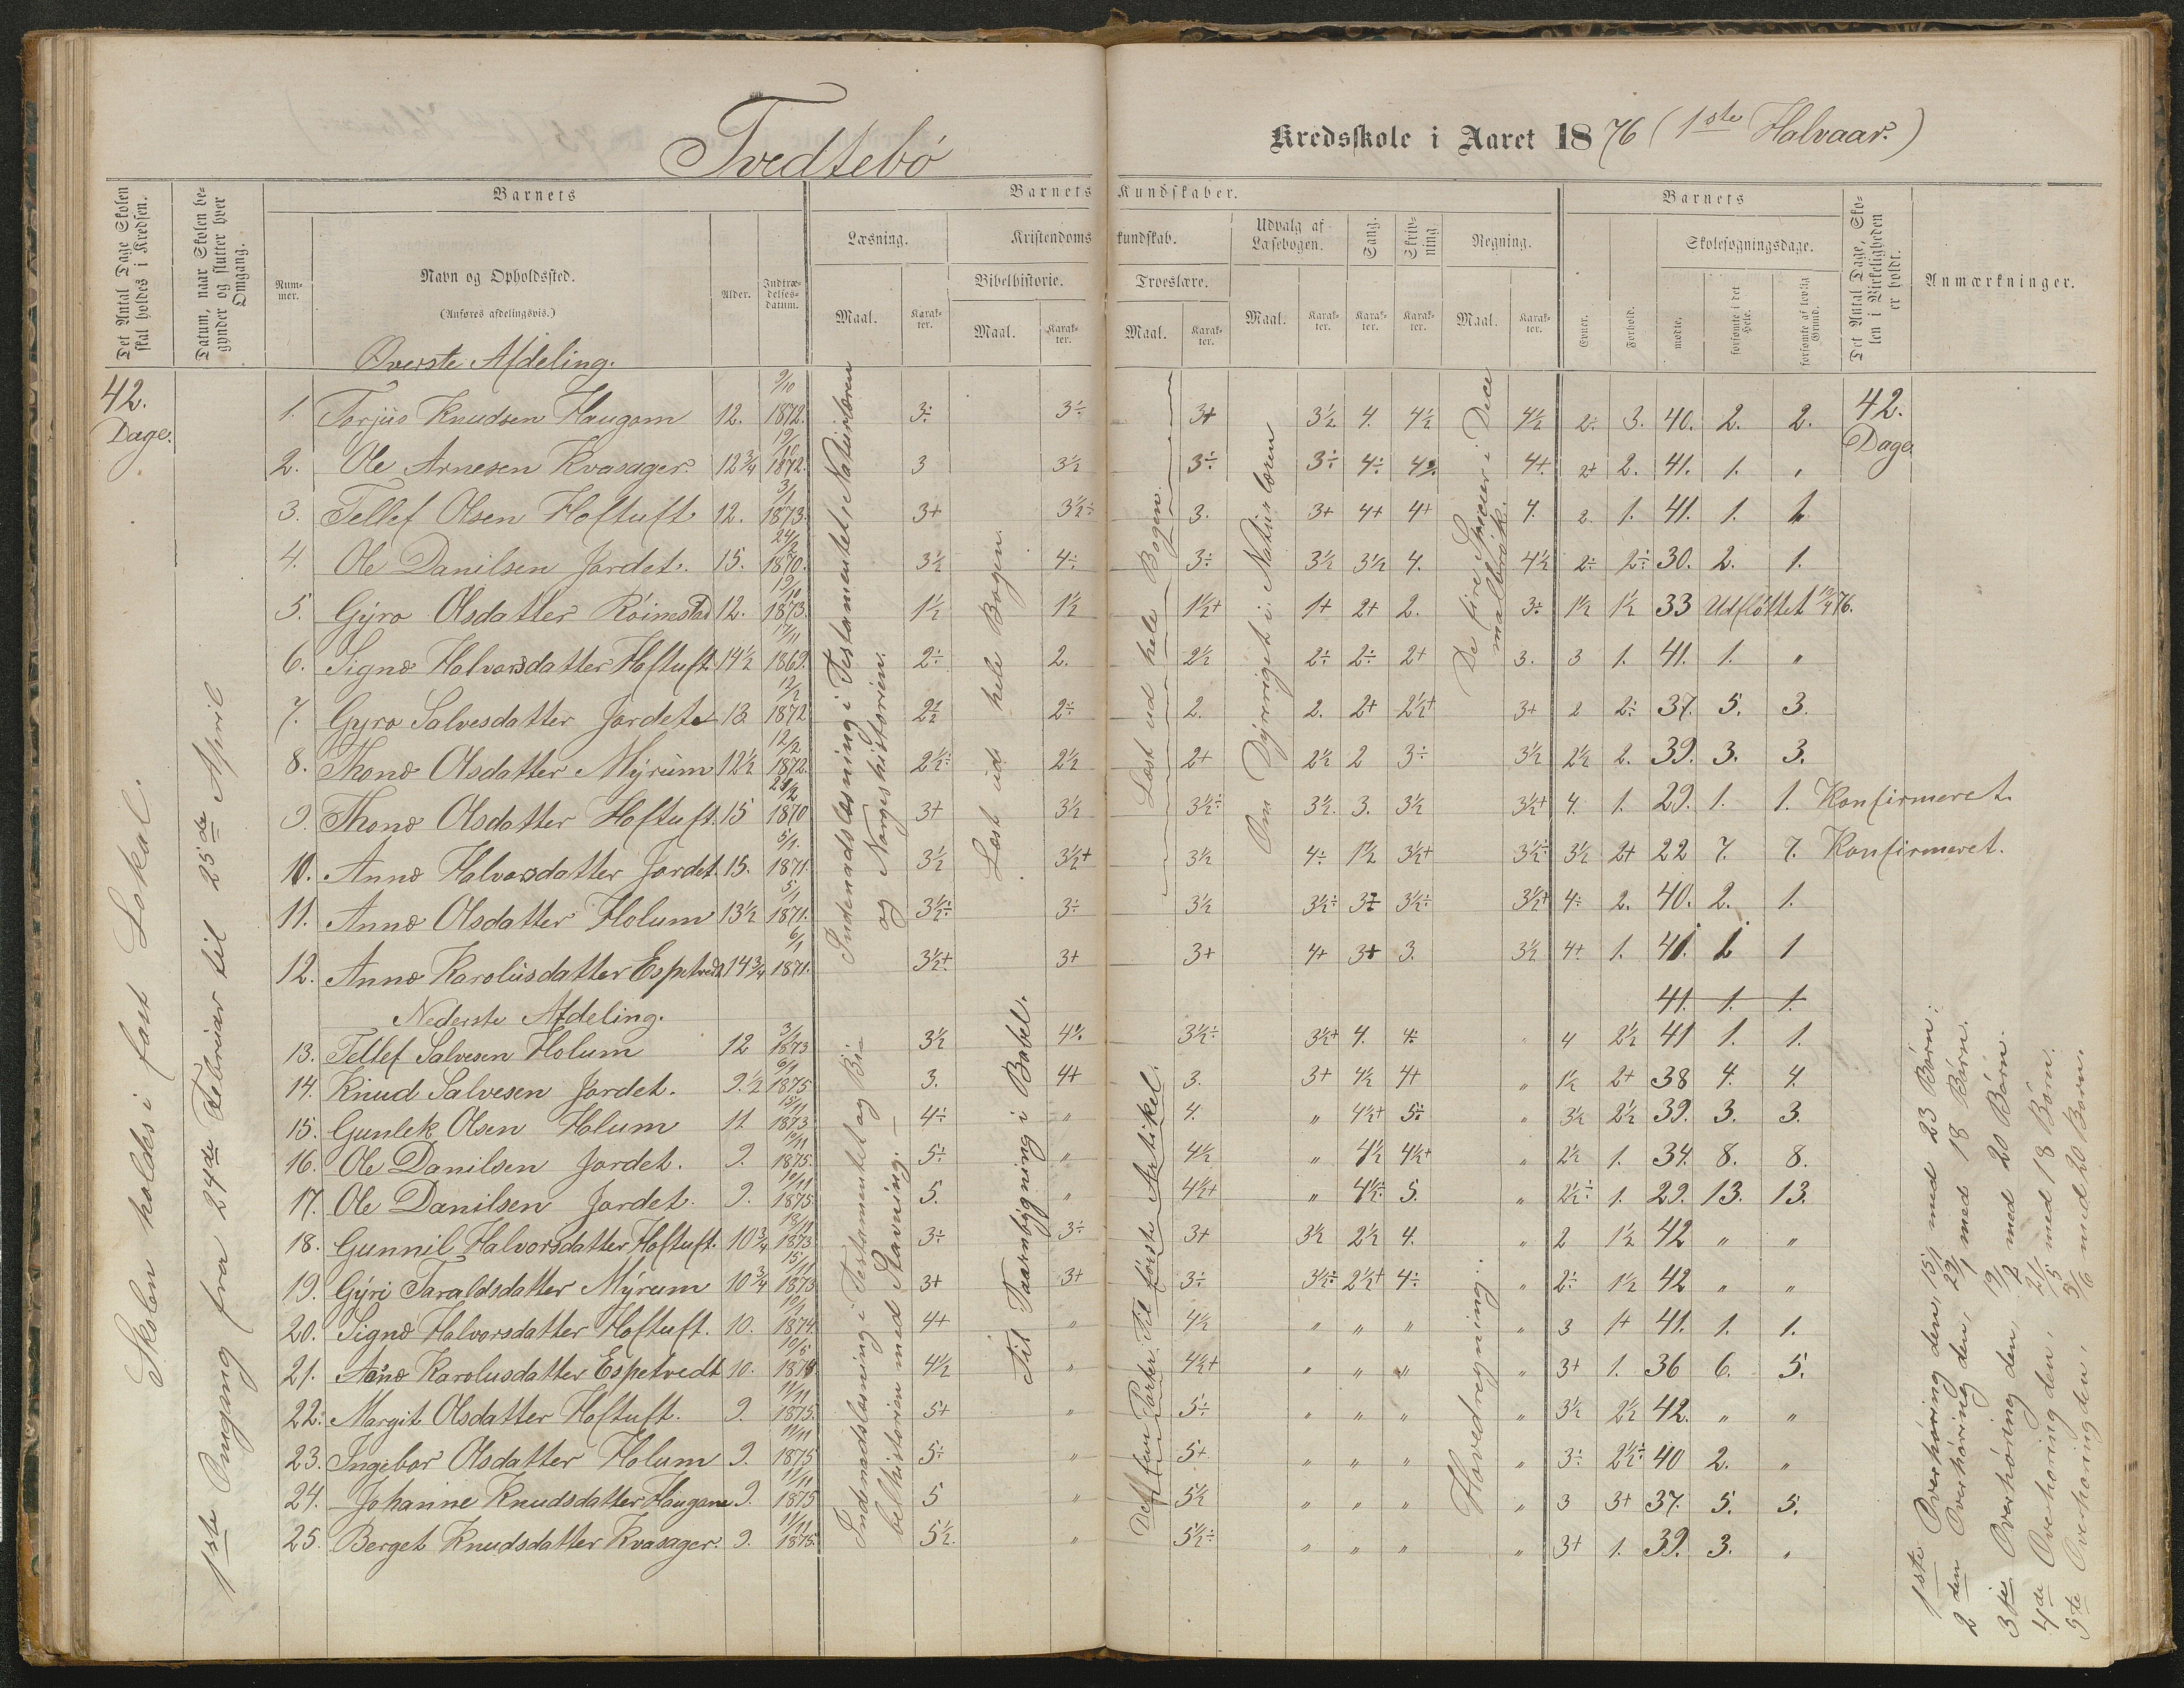 Tvedtebø
Kredsskole i Aaret 1876 (1ste Halvaar.)
Det Antal Dage Skolen skal holdes i Kredsen.
Datum, naar Skolen begynder og slutter hver Omgang.
Barnets
Nummer.
Navn og Opholdssted.
(Anføres afdelingsvis.)
Alder.
Indtrædelsesdatum.
Barnets Kundskaber.
Læsning.
Maal.
Karakter.
Kristendomskundskab.
Bibelhistorie.
Maal.
Karakter.
Troeslære.
Maal.
Karakter.
Udvalg af Læsebogen.
Maal.
Karakter.
Sang.
Karakter.
Skrivning.
Karakter.
Regning.
Maal.
Karakter.
Barnets
Evner.
Forhold.
Skolesøgningsdage.
mødte,
forsømte i det Hele.
forsømte af lovlig Grund.
Det Antal Dage, Skolen i Virkeligheden er holdt.
Anmærkninger.
42. Dage.
Skolen holdes i fast Lokal.
1ste Omgang fra 24de Februar til 25de April
Øverste Afdeling.
1. Torjus Knudsen Haugom 12. 9/10 1872. 3÷ 3÷ 3+ 3½ 4. 4½ 4½ 2÷ 3. 40. 2. 2. 42. Dage
2. Ole Arnesen Kvasager. 12¾ 1872. 3 3½ 3÷ 3÷ 4÷ 4+ 2+ 2. 41. 1. "
3. Tellef Olsen Hoftuft 12. 3/1 1873. 3+ 3½÷ 3. 3+ 4+ 4+ 4. 2. 1. 41. 1. 1.
4. Ole Danilsen Jordet. 15. 24/2 1870. 3½ 4÷ 3÷ 3½ 3½ 4. 4½ 2÷ 2÷ 30. 2. 1.
5. Gyro Olsdatter Röimstad 12. 19/10 1873. 1½ 1½ 1½+ 1+ 2+ 2. 3÷ 1½ 1½ 33 Udflöttet 19/4 76.
6. Signe Halvorsdatter Hoftuft 14½ 17/11 1869. 2÷ 2. 2½ 2÷ 2÷ 2+ 3. 3 1. 41. 1. "
7. Gyro Salvesdatter Jordet 13 12/2 1872 2½ 2÷ 2. 2. 2+ 2½+ 3+ 2 2÷ 37. 5. 3.
8. Thone Olsdatter Myrum 12½ 12/2 1872. 2½÷ 2½ 2+ 2½ 2 3÷ 3½ 2½ 2. 39. 3. 3.
9. Thone Olsdatter Hoftuft. 15 1870 3+ 3½ 3½÷ 3½. 3. 3½ 3½+ 4. 1. 29. 1. 1. Konfirmeret.
10. Anne Halvorsdatter Jordet. 15. 5/1. 1871. 3½ 3½+ 3½ 4÷ 1½ 3½+ 3½÷ 3½ 2+ 22 7. 7. Konfirmeret.
11. Anne Olsdatter Holum 13½ 5/1 1871. 3½÷ 3÷ 3½ 3½÷ 3½÷ 3½+ 4÷ 2. 40. 2. 1.
12. Anne Karolusdatter Espetvedt 14¾ 6/1 1871. 3½+ 3+ 3+ 4+ 3+ 3. 3½ 4+ 1. 41. 1 1
41. 1. 1.
Indenadslæsning i Testamentet, Naturlæren og Norgeshistorien.
Læst ud hele Bogen.
Læst ud hele Bogen.
Om Dyreriget i Naturlæren
De fire Specier i Decemalbrök.
Nederste Afdeling.
13. Tellef Salvesen Holum 12 3/1 1873 3½ 3½÷ 3½+ 4. 4÷ " 4 2½ 41 1. 1.
14. Knud Salvesen Jordet. 9.½ 1875 3. 4+ 3. 3+ 4½ 4+ " 1½ 2+ 38 4. 4.
15. Gunlek Olsen Holum 11 15/11 1873 4÷ " 4. " 4½+ 5÷ " 3½ 2½ 39. 3. 3.
16. Ole Danilsen Jordet. 9. 10/11 1875. 5÷ " 4½ " 4½ 4½+ " 2½ 1. 34. 8. 8.
17. Ole Danilsen Jordet. 9. 10/11 1875. 5. " 4½+ " 4½÷ 5. " 2½÷ 1. 29. 13. 13.
18. Gunnil Halvorsdatter Hoftuft. 10¾ 13/11 1873 3÷ 3÷ 3+ 3½ 2½ 4. " 2 1½ 42 " "
19. Gyri Taraldsdatter Myrum 10¾ 15/11 1873 3+ 3+ 3÷ 3½÷ 2½+ 4÷ " 2÷ 1½ 42 " "
20. Signe Halvorsdatter Hoftuft. 10. 1874. 4+ " 4½ " " " " 3 1+ 41. 1. 1.
21. Aane Karolusdatter Espetvedt 10. 4½ " 4½+ " " " " 3+ 1. 36 6. 5.
22. Margit Olsdatter Hoftuft. 9. 11/11 1875. 5+ " 5÷ " " " " 3½ 2½ 42. " "
23. Ingebor Olsdatter Holum 9. 11/11 1875 5÷ " 5+ " " " " 3÷ 2½÷ 40 2. "
24. Johanne Knudsdatter Haugom 9. 11/11 1875 5 " 5½ " " " " 3 3+ 37. 5. 5.
25. Berget Knudsdatter Kvasager. 9. 11/11 1875. 5½. " 5½÷ " " " " 3+ 1. 39. 3. "
Indenadslæsning i Testamentet og Bibelhistorien med Stavning. —
Til Taarnbygning i Babel.
Det fem Parter. Til förste Artikel.
Hovedregning.
1ste Overhøring den, 15/1 med 23 Børn.
2den Overhøring den, 29/1 med 18 Børn.
3die Overhøring den, 19/2 med 20 Børn.
4de Overhøring den, 21/5 med 18 Børn.
5te Overhøring den, 3/6 med 20 Børn.